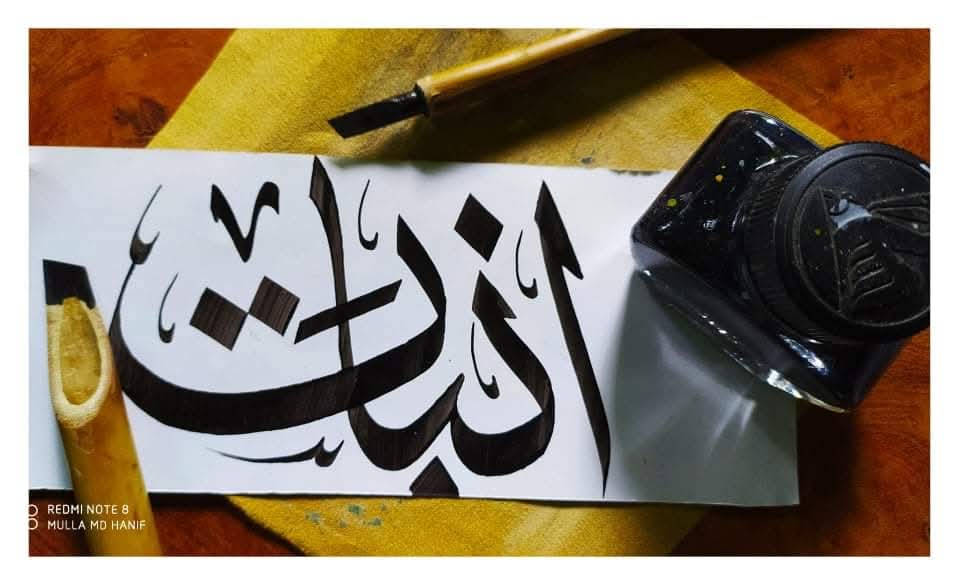 انبات
REDMI NOTE 8
MULLA MD HANIF